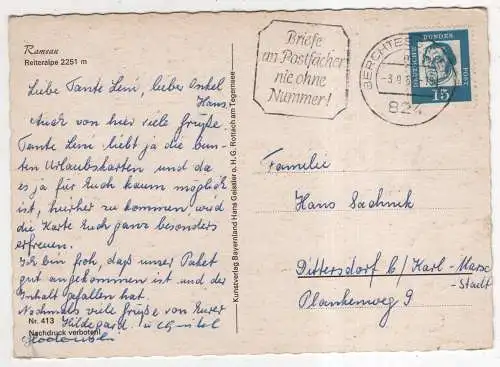 Ramsau
Reiteralpe 2251 m
Liebe Tante Leni, lieber Onkel
Hans,
Auch von hier viele Grüße.
Tante Leni liebt ja die bun-
ten Urlaubskarten und da
es ja für Euch kaum möglich
ist, hierher zu kommen, wird
die Karte Euch ganz besonders
erfreuen.
Ich bin froh, daß unser Paket
gut angekommen ist und der
Inhalt gefallen hat.
Nochmals viele Grüße von Eurer
Hildegard
Nr. 413
Nachdruck verboten!
Kunstverlag Bayenland Hans Geissler o. H. G. Rottach am Tegernsee
Briefe
an Postfächer
nie ohne
Nummer!
BERCHTES
824
DEUTSCHE BUNDESPOST
15
Familie
Hans Sachnik
Dittersdorf b/ Karl-Marx-
Stadt
Plankenweg 9